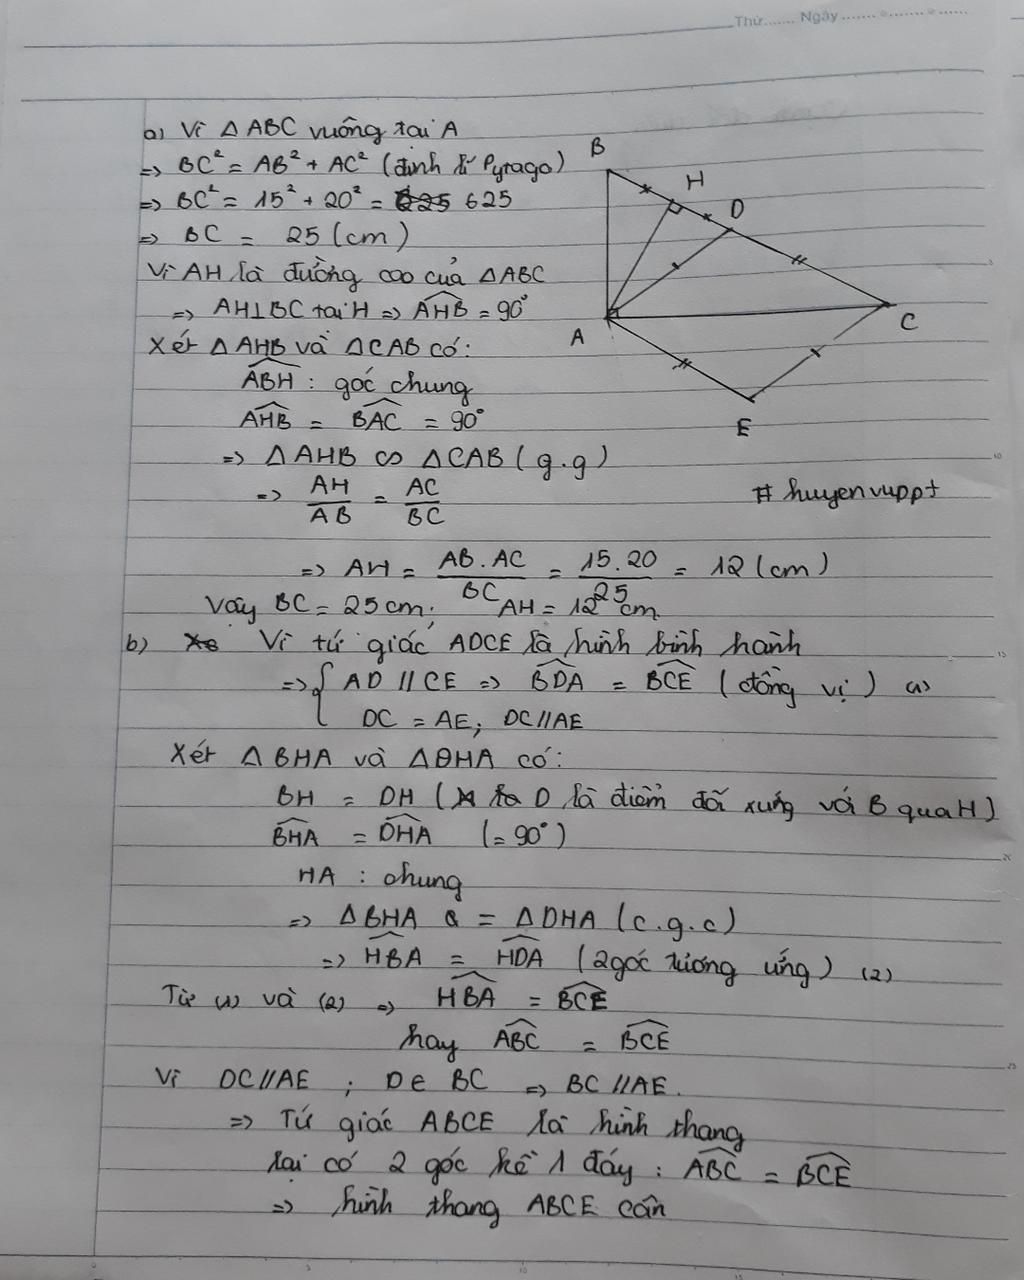 Thứ....... Ngày ....... ....... ......
a) Vì △ ABC vuông tại A
=> BC² = AB² + AC² (định lí Pytago)
=> BC² = 15² + 20² = 625
=> BC = 25 (cm)
Vì AH là đường cao của △ABC
=> AH⊥BC tại H => AHB = 90°
Xét △ AHB và △CAB có:
ABH : góc chung
AHB = BAC = 90°
=> △ AHB ∽ △CAB (g.g)
=> AH/AB = AC/BC
B
H
D
A
C
E
# huyenvuppt
=> AH = AB.AC/BC = 15.20/25 = 12 (cm)
Vậy BC = 25cm; AH = 12 cm
b) Vì tứ giác ADCE là hình bình hành
=> { AD // CE => BDA = BCE (đồng vị) (1)
DC = AE; DC//AE
Xét △ BHA và △DHA có:
BH = DH (D là điểm đối xứng với B qua H)
BHA = DHA (= 90°)
HA : chung
=> △BHA = △DHA (c.g.c)
=> HBA = HDA (2 góc tương ứng) (2)
Từ (1) và (2) => HBA = BCE
hay ABC = BCE
Vì DC//AE ; D∈ BC => BC//AE.
=> Tứ giác ABCE là hình thang
lại có 2 góc kề 1 đáy : ABC = BCE
=> hình thang ABCE cân